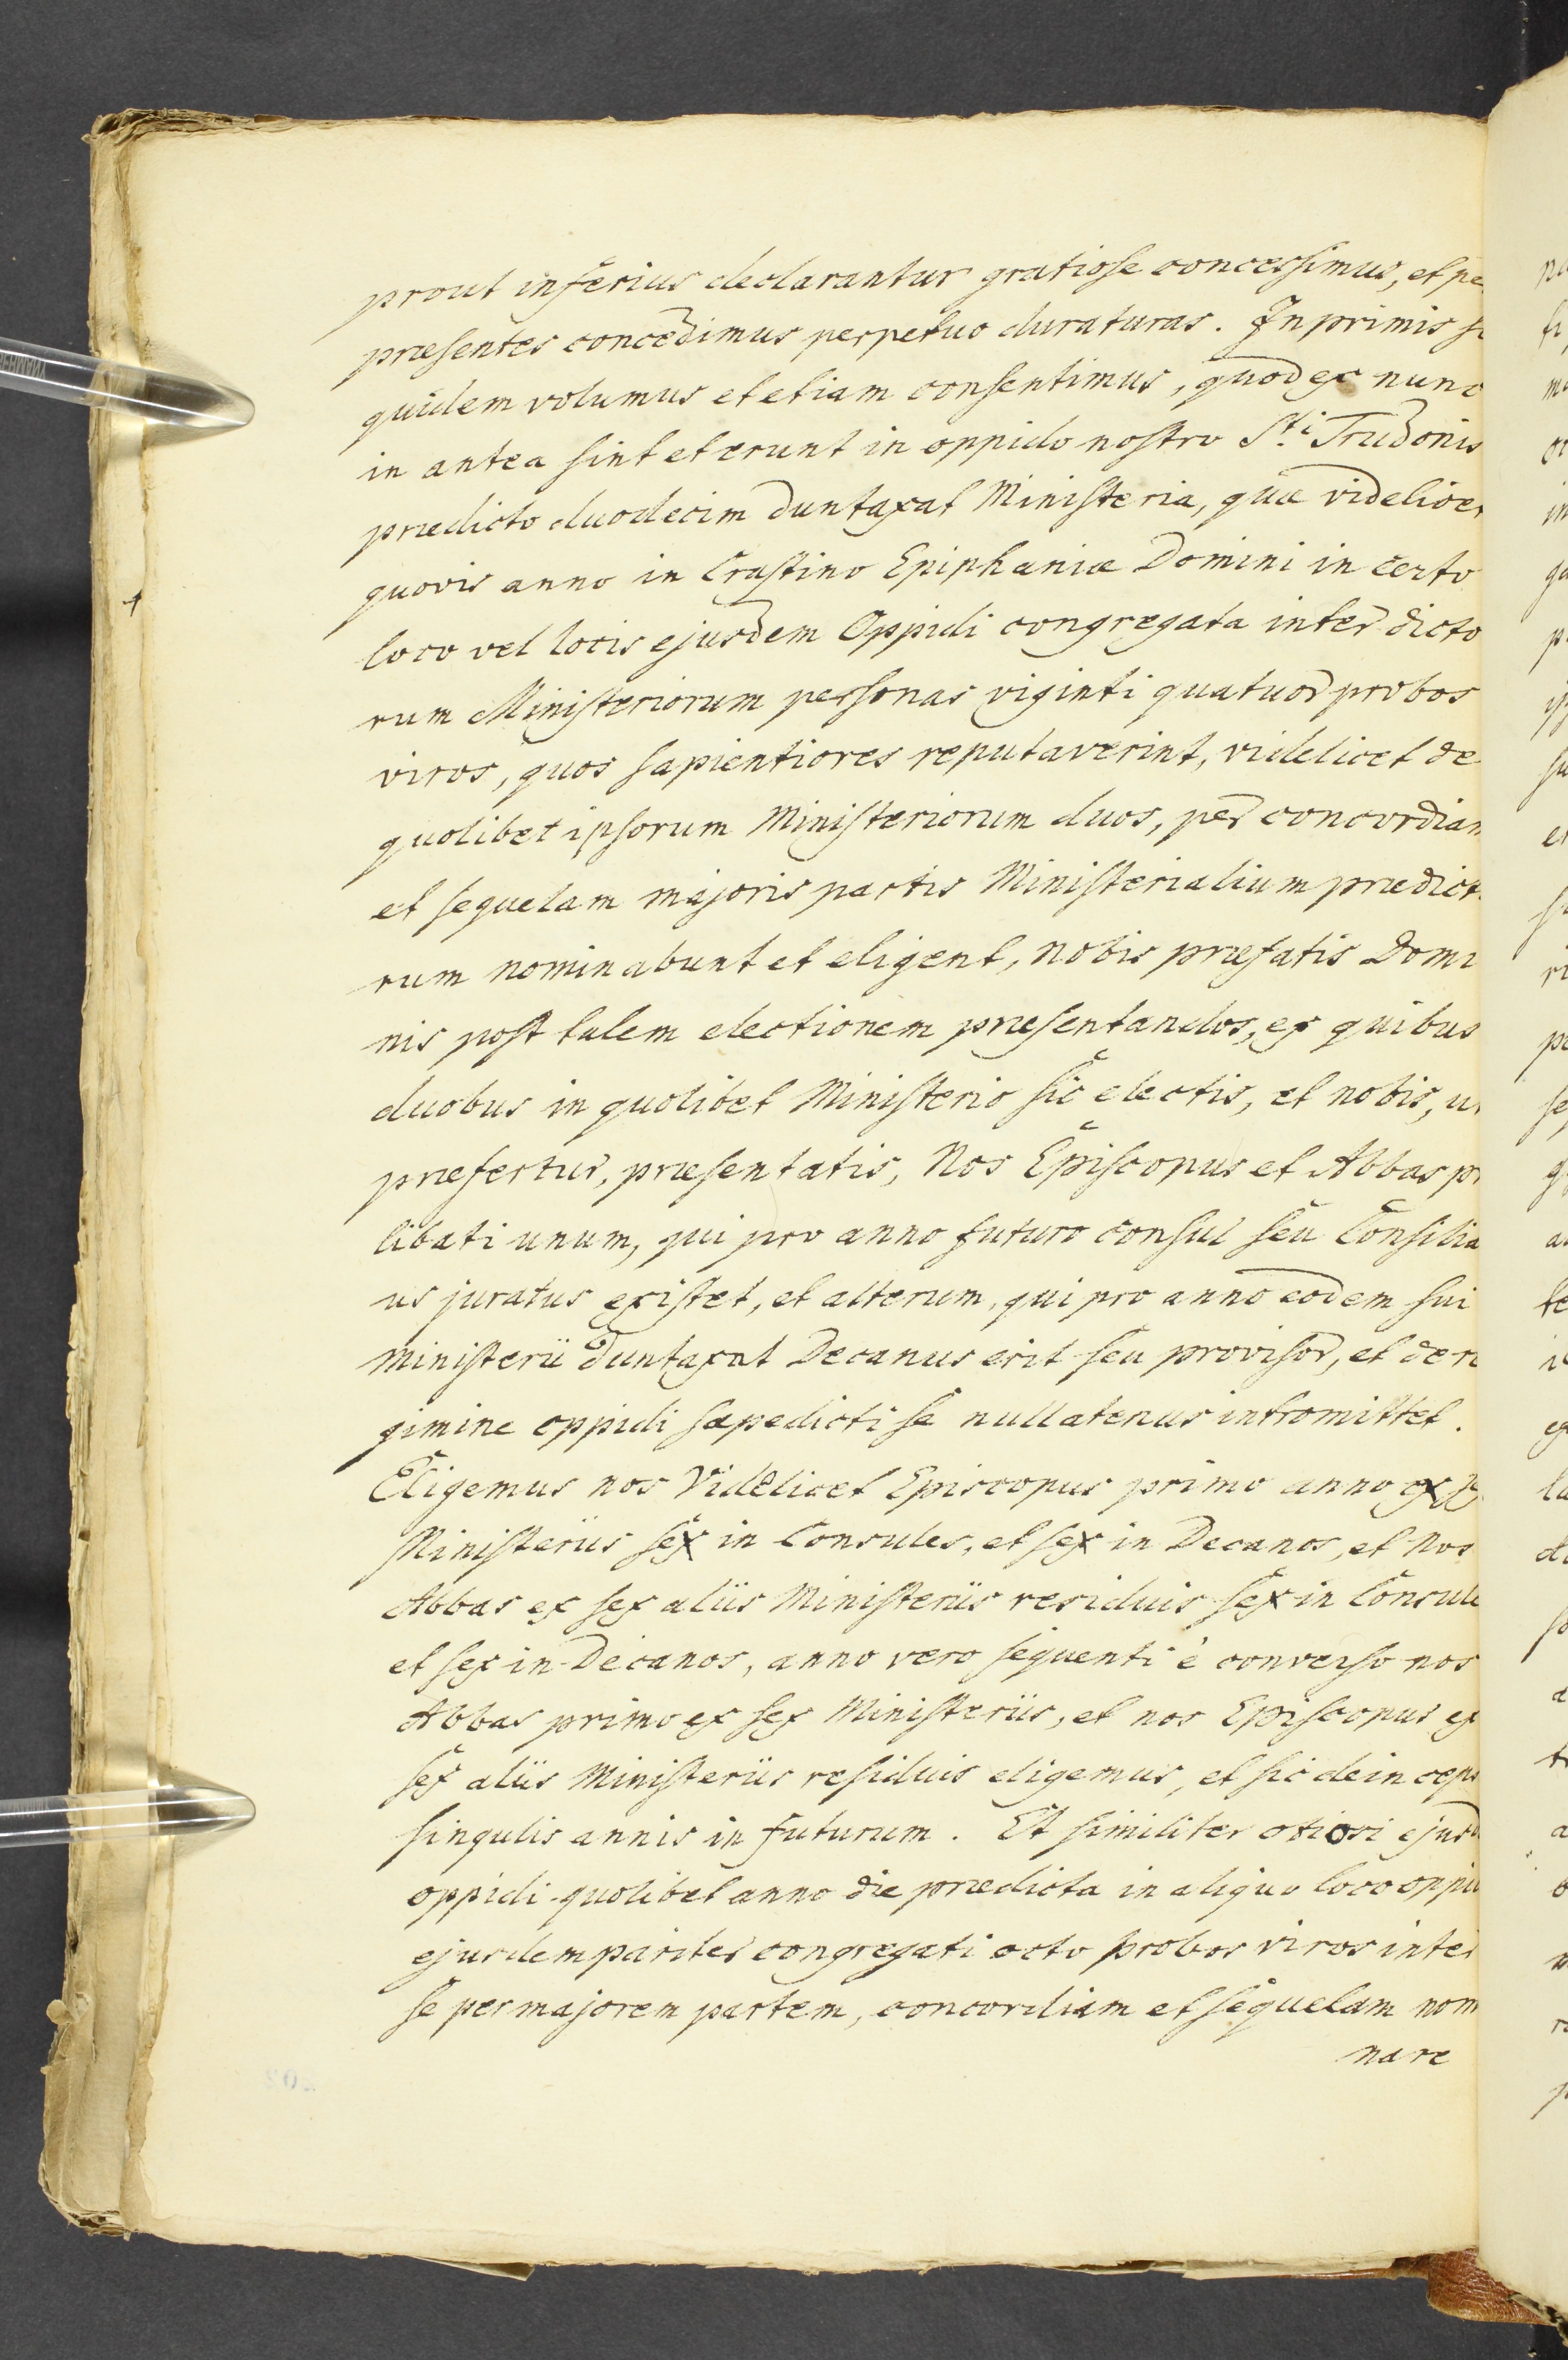 prout inferius declarantur gratiose concessimus, et pe
præsentes concedimus perpetuo duraturas. In primis si
quidem volumus et etiam consentimus, quod ex nunc
in antea sint et erunt in oppido nostro Sti Trudonis
prædicto duodecim duntaxat Ministeria, quæ videlicet
quovis anno in Crastino Epiphaniæ Domini in certo
loco vel locis ejusdem Oppidi congregata inter dicto
rum Ministeriorum personas viginti quatuor probos
viros, quos sapientiores reputaverint, videlicet de
quolibet ipsorum Ministeriorum duos, per concordiam
et sequelam majoris partis Ministerialium prædict
rum nominabunt et eligent, nobis præfatis Domi
nis post talem electionem præsentandos, ex quibus
duobus in quolibet Ministerio sic electis, et nobis, ut
præfertur, præsentatis, Nos Episcopus et Abbas pr
libati unum, qui pro anno futuro consul seu Consilia
us juratus existet, et alterum, qui pro anno eodem sui
Ministerii duntaxat Decanus erit seu provisor, et de re
gimine oppidi sæpedicti se nullatenus intromittet.
Eligemus nos Videlicet Episcopus primo anno ex
Ministeriis sex in Consules, et sex in Decanos, et Nos
Abbas ex sex aliis Ministeriis residuis sex in Consule
et sex in Decanos, anno vero sequenti è converso nos
Abbas primo ex sex Ministeriis, et nos Episcopus ex
sex aliis Ministeriis residuis eligemus, et sic deinceps
singulis annis in futurum. Et similiter otiosi ejusd
oppidi quolibet anno die prædicta in aliquo loco oppid
ejusdem pariter congregati octo probos viros inter
se per majorem partem, concordiam et sequelam nom
nare